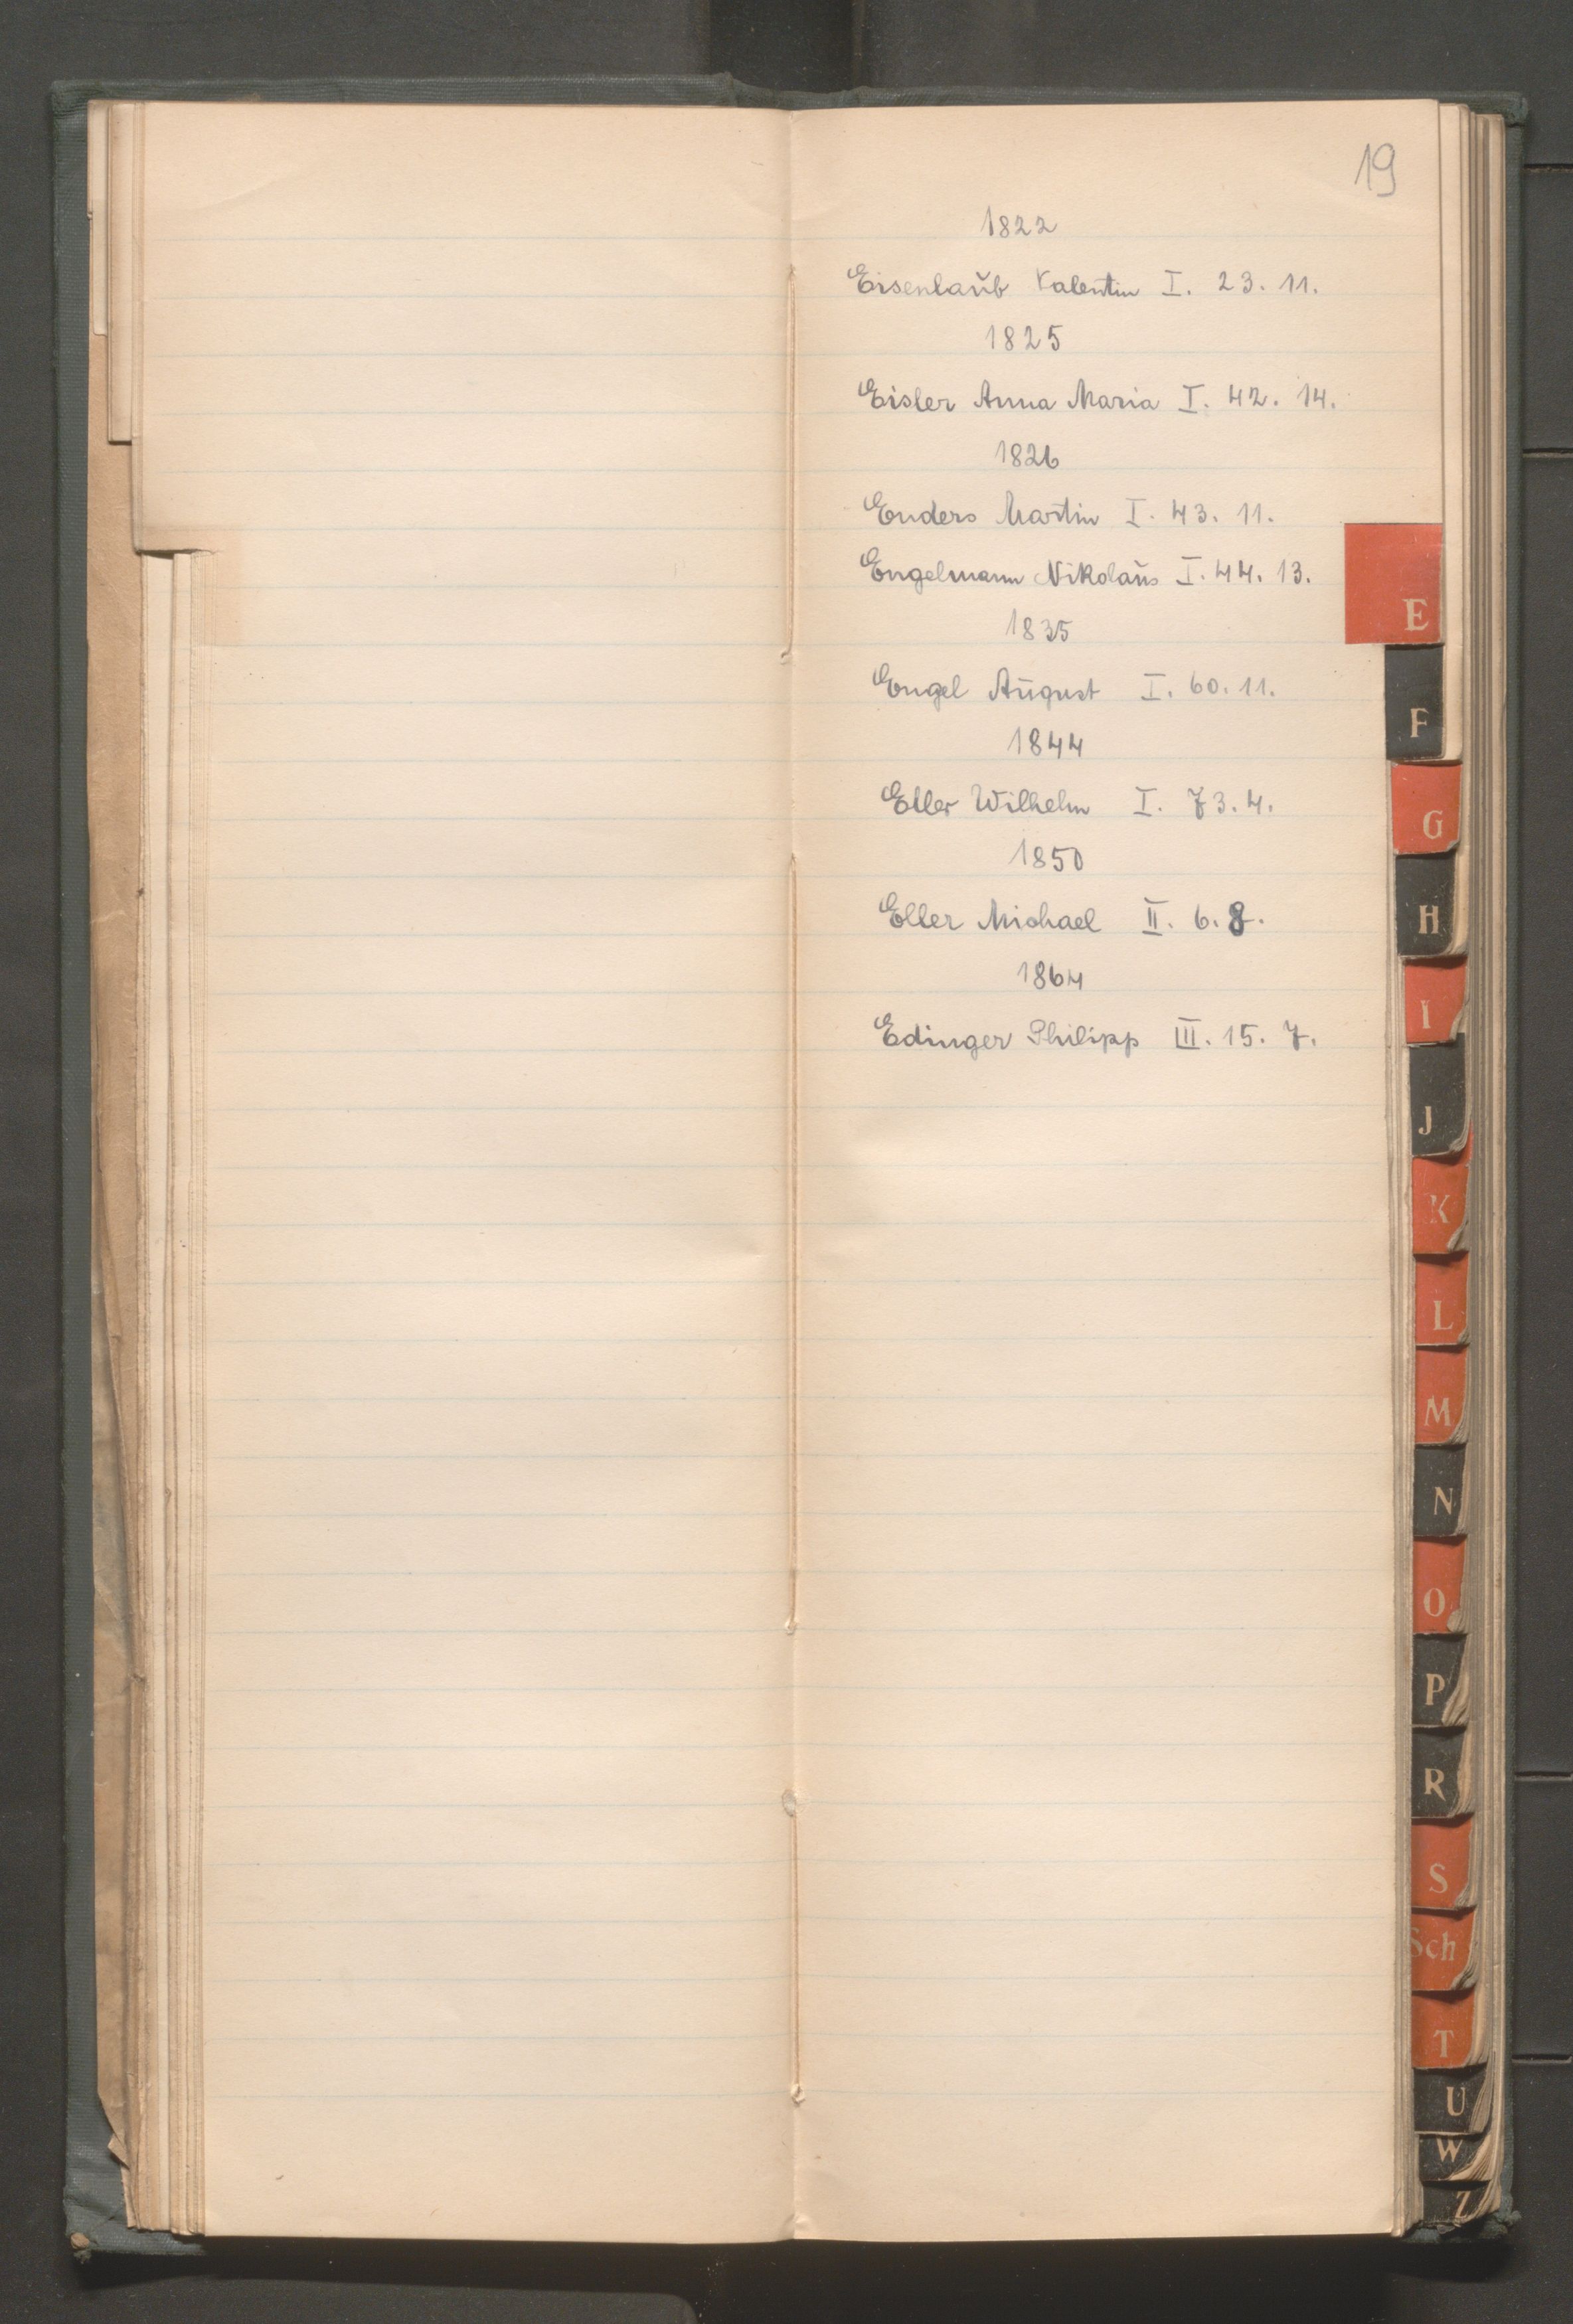 19
1822
Eisenlaub Valentin I. 23. 11.
1825
Eisler Anna Maria I. 42. 14.
1826
Enders Martin I. 43. 11.
Engelmann Nikolaus I. 44. 13.
1835
Engel August I. 60. 11.
1844
Eller Wilhelm I. 73. 4.
1850
Eller Michael II. 6. 8.
1864
Edinger Philipp III. 15. 7.
E
F
G
H
I
J
K
L
M
N
O
P
R
S
Sch
T
U
W
Z